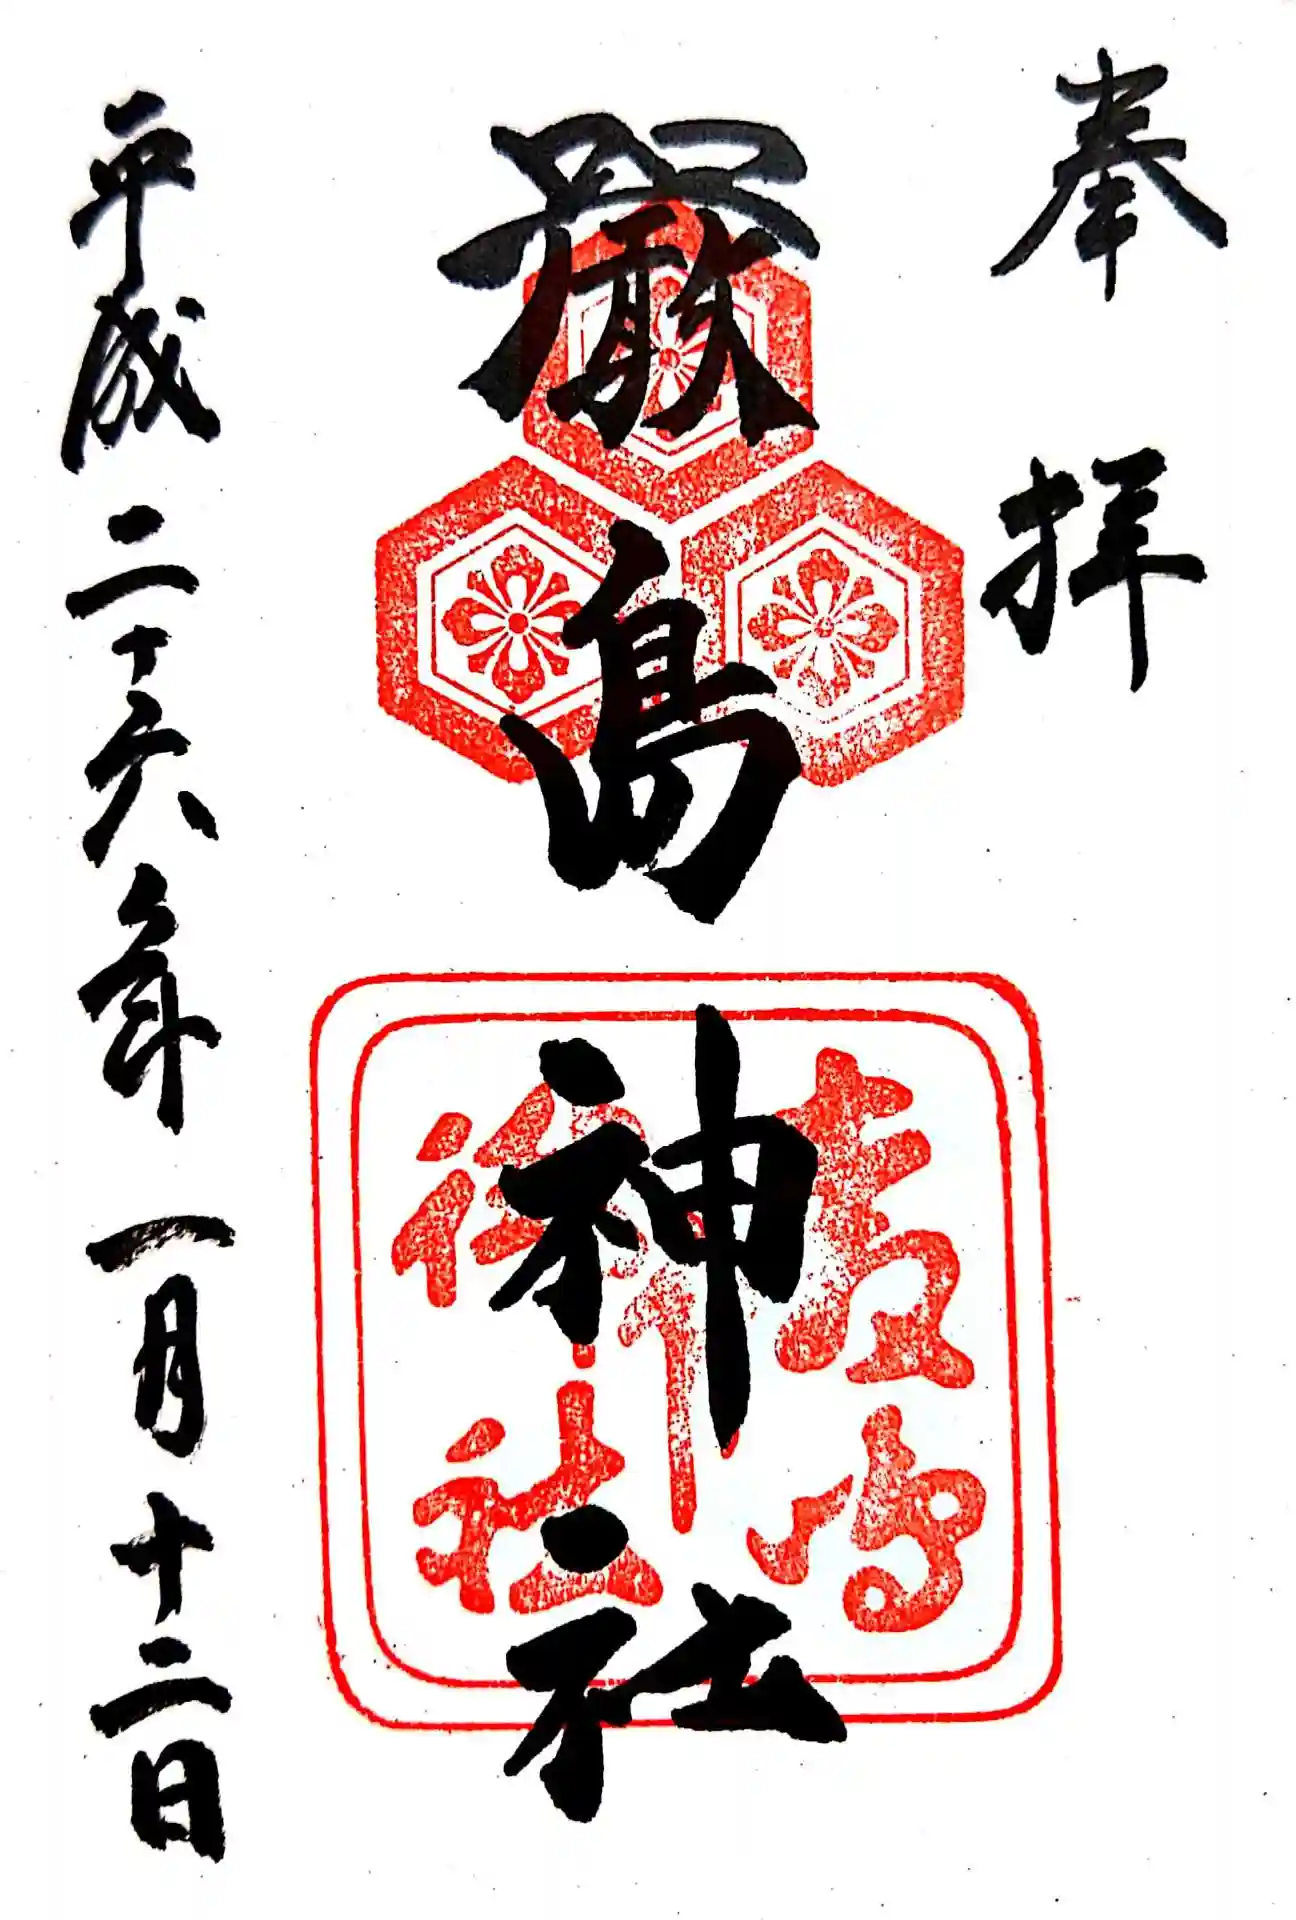 奉拝
厳島神社
嚴嶋御神社
平成二十六年一月十二日